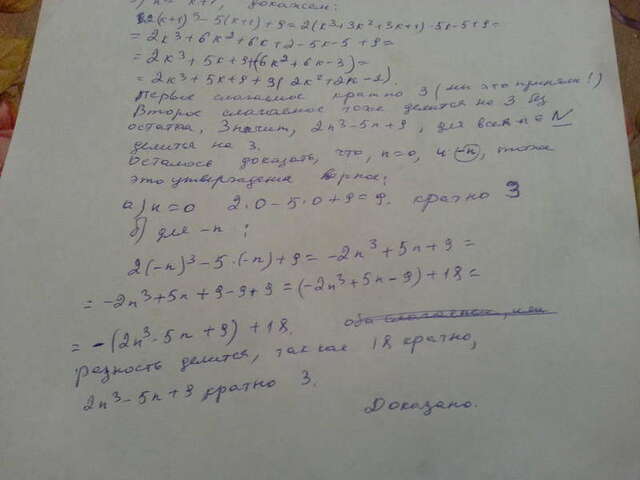 n = k+1, докажем:
2(k+1)³ - 5(k+1) + 9 = 2(k³+3k²+3k+1) - 5k - 5 + 9 =
= 2k³ + 6k² + 6k + 2 - 5k - 5 + 9 =
= 2k³ + 5k + 9 + (6k² + 6k - 3) =
= 2k³ + 5k + 9 + 3(2k² + 2k - 1).
Первые слагаемое кратно 3 (мы это приняли!)
Второе слагаемое тоже делится на 3 без
остатка, Значит, 2n³ - 5n + 9, для всех n ∈ N
делится на 3.
Осталось доказать, что, n=0, и -n, тоже
это утверждения верное:
а) n = 0 2·0 - 5·0 + 9 = 9. кратно 3
б) для -n :
2(-n)³ - 5·(-n) + 9 = -2n³ + 5n + 9 =
= -2n³ + 5n + 9 - 9 + 9 = (-2n³ + 5n - 9) + 18 =
= -(2n³ - 5n + 9) + 18. оба слагаемых, или
Разность делится, так как 18 кратно,
2n³ - 5n + 9 кратно 3.
Доказано.